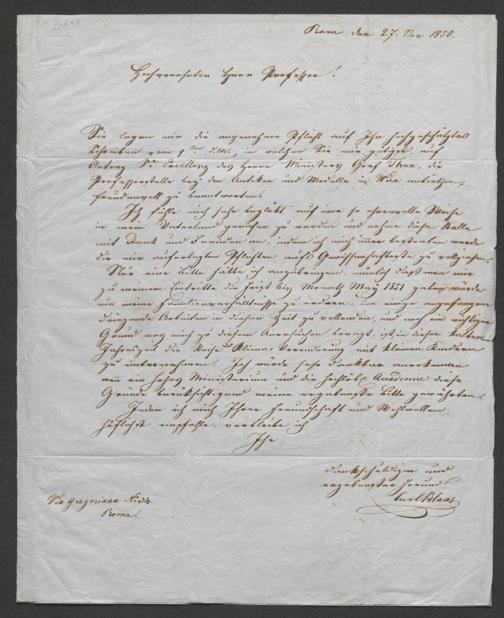 Rom den 27. Nov 1850.
Hochverehrter Herr Professor!
Sie legen mir die angenehme Pflicht auf Ihr hochgeschätztes
Schreiben vom 9ten d. M., in welchem Sie mir gütigst auf
Antrag Sr Excellenz des Herrn Ministers Graf Thun, die
Professorstelle bey den Antiken und Medalle in Wien anbiethen,
freudenvoll zu beantworten.
Ich fühle mich sehr beglückt auf eine so ehrenvolle Weise
in mein Vaterland gerufen zu werden und nehme diese Stelle
mit Dank und Freuden an, indem ich mich bestreben werde
die mir auferlegten Pflichten aufs Gewissenhafteste zu vollziehen.
Nur eine Bitte hätte ich anzubringen, nämlich daß man mir
zu meinem Eintritte die Frist bis Monath May 1851 geben würde
um meine Familienverhältnisse zu ordnen, um einige angefangene
dringende Arbeiten in dieser Zeit zu vollenden, und noch ein wichtiger
Grund was mich zu diesem Ansuchen bewegt, ist in dieser kalten
Jahreszeit die Reise Klima-Veränderung mit kleinen Kindern
zu unternehmen. Ich würde sehr dankbar anerkennen
wenn ein hohes Ministerium und die Academie diese
Gründe berücksichtigend meine ergebenste Bitte gewähreten.
Indem ich mich Ihrer Freundschaft und Wohlwollen
höflichst empfehle verbleibe ich
Ihr
dankschuldiger und
ergebenster Freund
Carl Blaas
Via gregoriana No 34.
Roma.